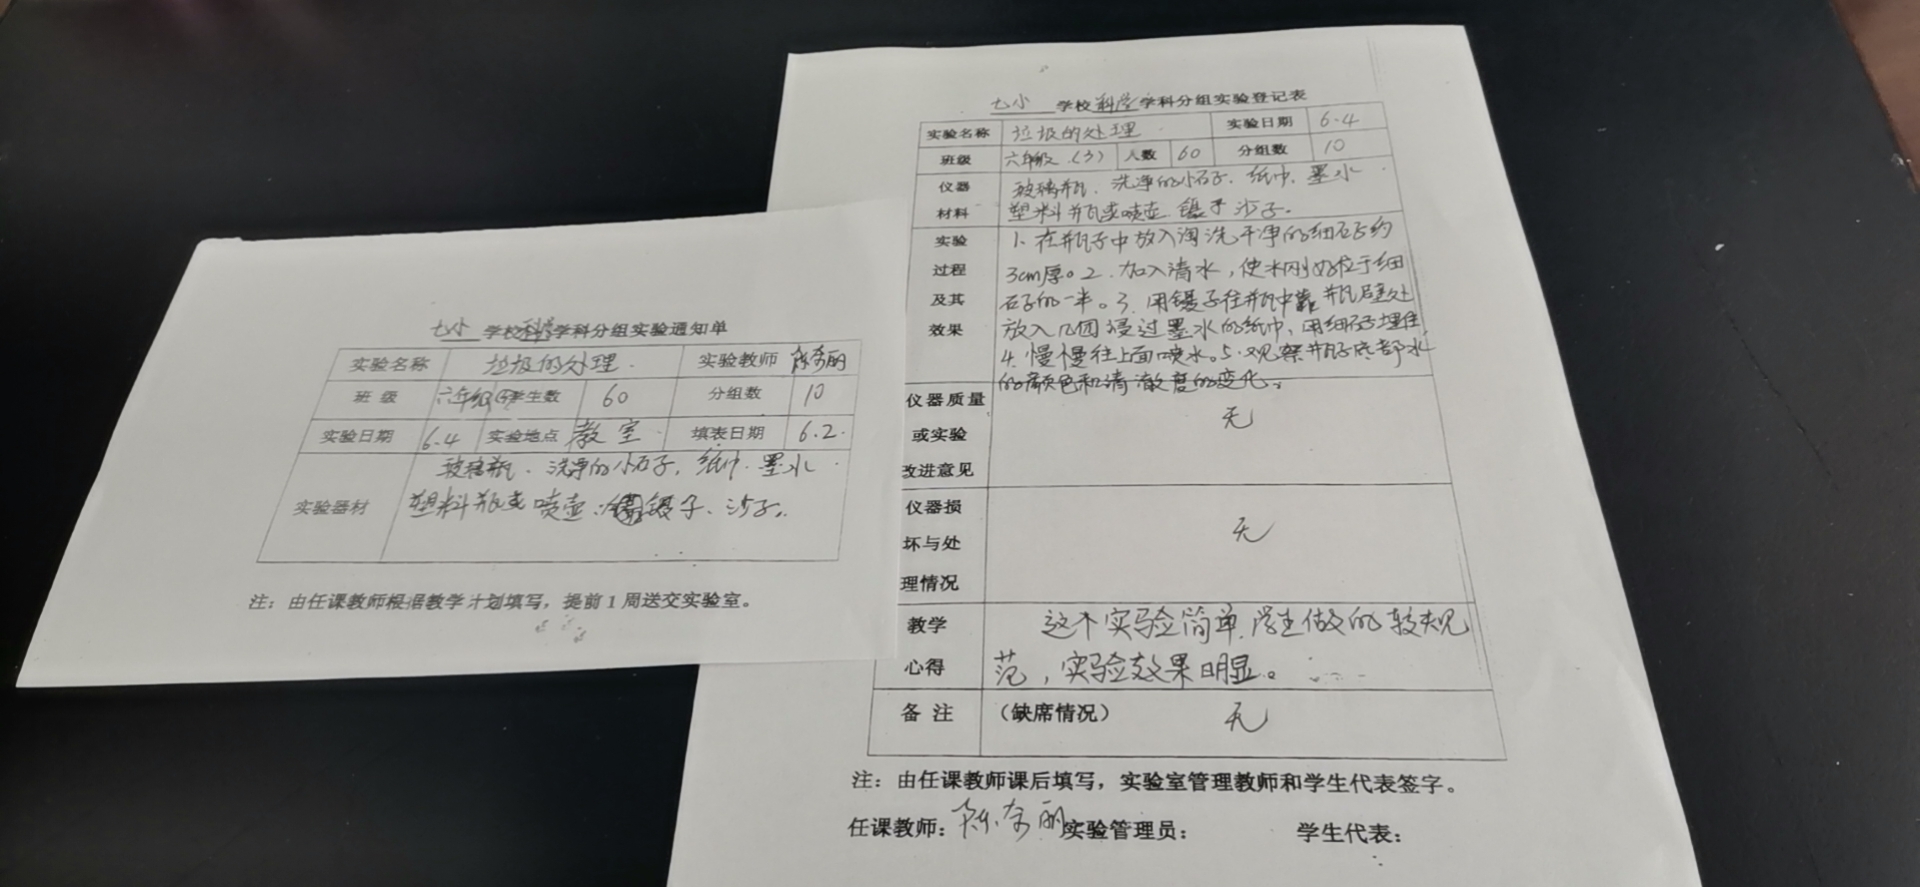 七小 学校科学学科分组实验通知单
实验名称 垃圾的处理. 实验教师
班 级 六年级 学生数 60 分组数 10
实验日期 6.4 实验地点 教室 填表日期 6.2.
玻璃瓶、洗净的小石子, 纸巾、墨水
实验器材 塑料瓶或喷壶、镊子、沙子.
注：由任课教师根据教学计划填写，提前1周送交实验室。
七小 学校科学学科分组实验登记表
实验名称 垃圾的处理 实验日期 6.4
班级 六年级（3） 人数 60 分组数 10
仪器 玻璃瓶、洗净的小石子、纸巾、墨水
材料 塑料瓶或喷壶 镊子 沙子.
实验 1. 在瓶子中放入淘洗干净的细石子约
过程 3cm厚。2. 加入清水，使水刚好位于细
及其 石子的一半。3. 用镊子在瓶中靠瓶壁处
效果 放入几团浸过墨水的纸巾，用细石子埋住,
4. 慢慢往上面喷水。5. 观察瓶子底部水
的颜色和清澈度的变化。
仪器质量
或实验 无
改进意见
仪器损
坏与处 无
理情况
教学 这个实验简单,学生做的较规
心得 范，实验效果明显。
备 注 （缺席情况） 无
注：由任课教师课后填写，实验室管理教师和学生代表签字。
任课教师： 实验管理员： 学生代表：